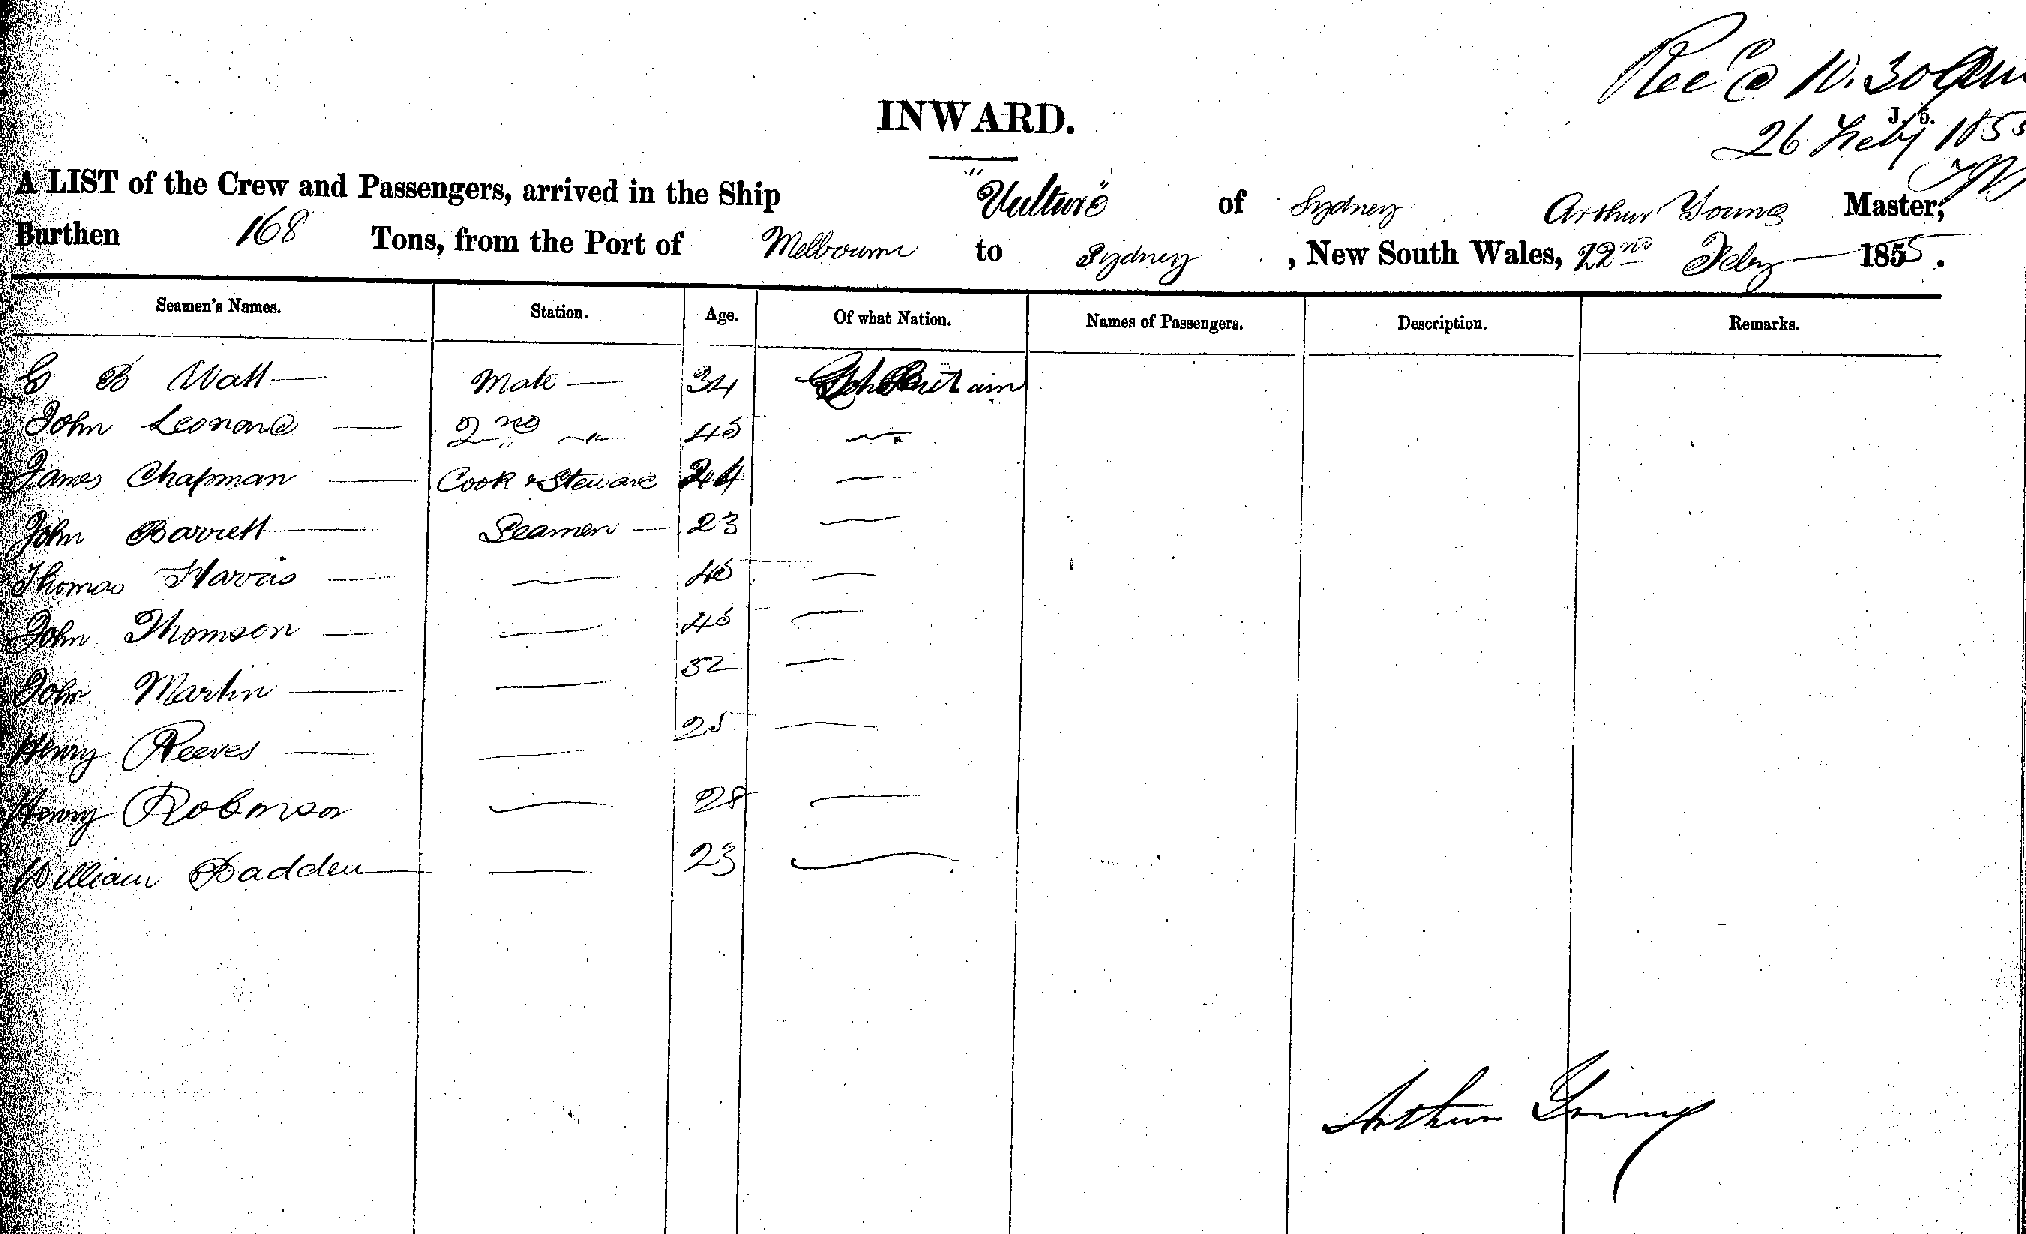 Rec'd 10.30 am
26 Feby 1855
J. S.
INWARD.
A LIST of the Crew and Passengers, arrived in the Ship "Vulture" of Sydney Arthur Young Master,
Burthen 168 Tons, from the Port of Melbourne to Sydney , New South Wales, 22nd Feby 1855.
Seamen's Names. Station. Age. Of what Nation. Names of Passengers. Description. Remarks.
B Watt — Mate — 34 Britain
John Leonard — 2nd " 45 "
James Chapman — Cook & Steward 24 —
John Barrett — Seamen — 23 —
Thomas Harris — — 45 —
John Thomson — — 45 —
John Martin — — 32 —
Henry Reeves — — 25 —
Henry Robinson — 28 —
William Hadden — — 23 —
Arthur Young